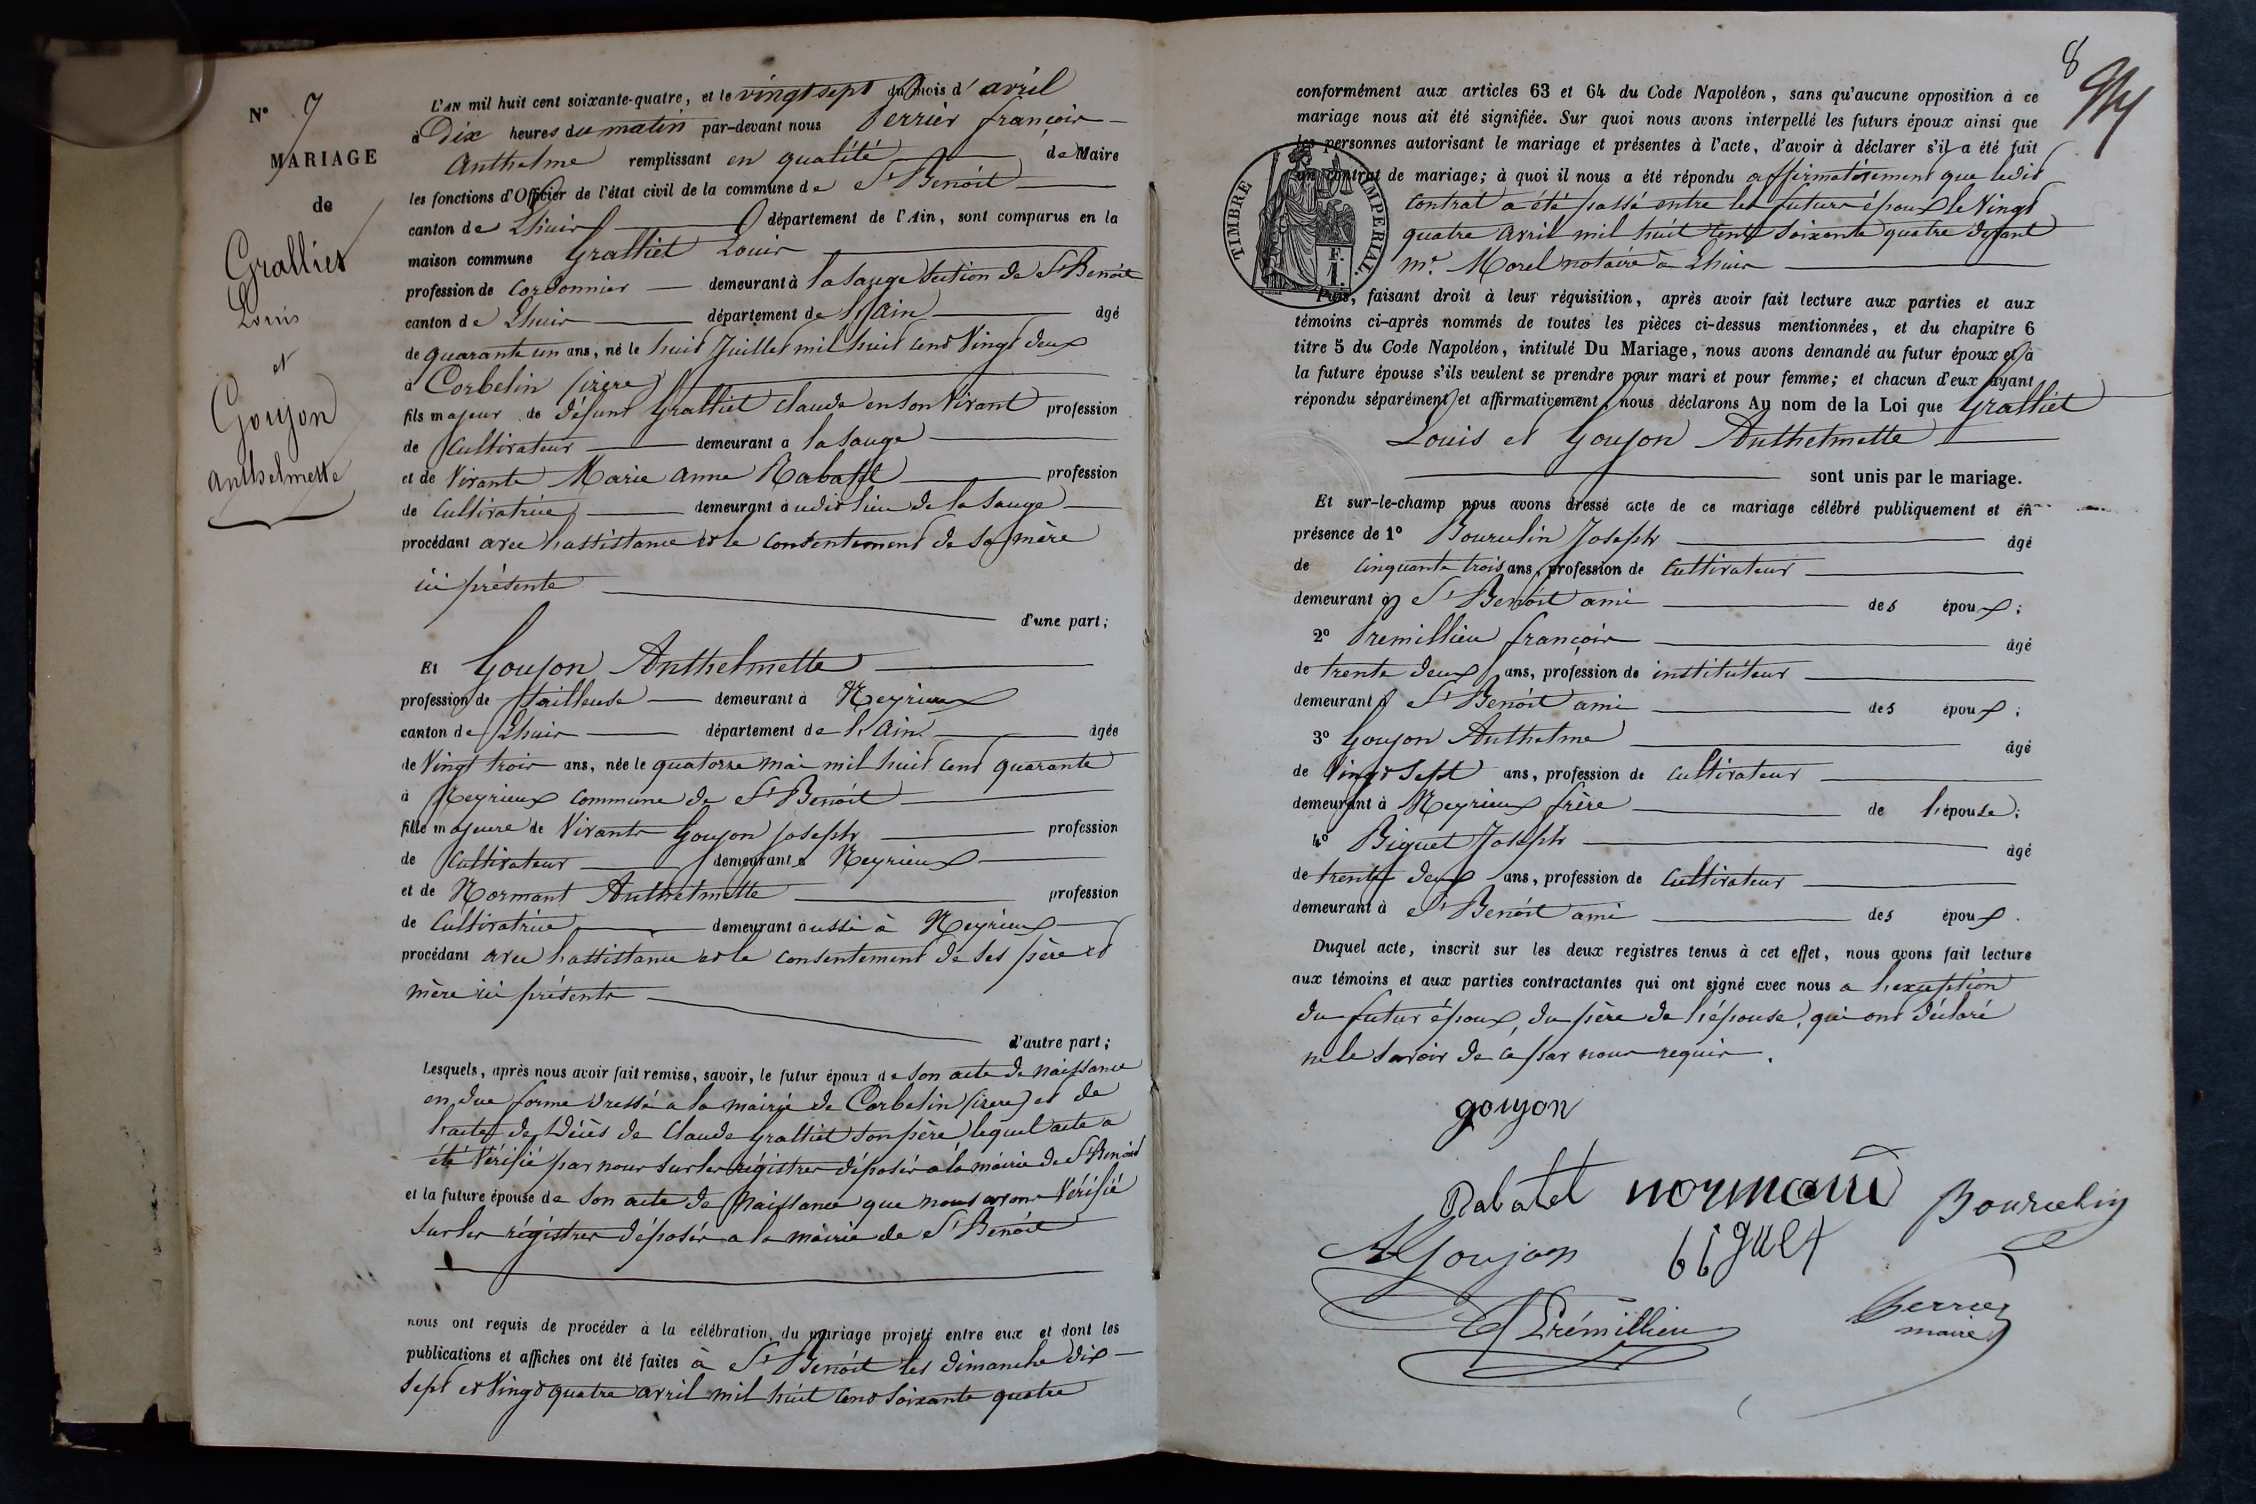 N° 7
MARIAGE
de
Gralliet
Louis
et
Goujon
anthelmette
L'AN mil huit cent soixante-quatre, et le vingt sept du mois d'avril
à Dix heures du matin par-devant nous Perrier françois
Anthelme remplissant en qualité de Maire
les fonctions d'Officier de l'état civil de la commune de St Benoit
canton de Lhuis département de l'Ain, sont comparus en la
maison commune Gralliet Louis
profession de cordonnier demeurant à la Sauge section de St Benoit
canton de Lhuis département de l'Ain âgé
de quarante un ans, né le huit Juillet mil huit cent Vingt deux
à Corbelin (isère)
fils majeur de défunt Gralliet Claude en son Vivant profession
de Cultivateur demeurant à la Sauge
et de Vivante Marie Anne Rabatel profession
de Cultivatrice demeurant audit lieu de la Sauge
procédant avec l'assistance et le consentement de sa mère
ici présente
d'une part;
Et Goujon Anthelmette
profession de tailleuse demeurant à Meyrieux
canton de Lhuis département de l'Ain âgée
de Vingt trois ans, née le quatorze mai mil huit cent quarante
à Meyrieux commune de St Benoit
fille majeure de Vivants Goujon Joseph profession
de Cultivateur demeurant à Meyrieux
et de Normant Anthelmette profession
de Cultivatrice demeurant aussi à Meyrieux
procédant avec l'assistance et le consentement de ses père et
mère ici présents
d'autre part;
Lesquels, après nous avoir fait remise, savoir, le futur époux de son acte de naissance
en due forme dressé à la mairie de Corbelin (isère) et de
l'acte de Décès de Claude Gralliet son père lequel acte a
été Vérifié par nous sur les régistres déposés à la mairie de St Benoit
et la future épouse de son acte de Naissance que nous avons Vérifié
sur les régistres déposés à la mairie de St Benoit
nous ont requis de procéder à la célébration du mariage projeté entre eux et dont les
publications et affiches ont été faites à St Benoit les dimanche dix
sept et Vingt quatre avril mil huit cent soixante quatre
8
conformément aux articles 63 et 64 du Code Napoléon, sans qu'aucune opposition à ce
mariage nous ait été signifiée. Sur quoi nous avons interpellé les futurs époux ainsi que
les personnes autorisant le mariage et présentes à l'acte, d'avoir à déclarer s'il a été fait
un contrat de mariage; à quoi il nous a été répondu affirmativement que ledit
Contrat a été passé entre les futurs époux le Vingt
quatre Avril mil huit cent soixante quatre devant
mr. Morel notaire à Lhuis
TIMBRE IMPERIAL
1 F.
Puis, faisant droit à leur réquisition, après avoir fait lecture aux parties et aux
témoins ci-après nommés de toutes les pièces ci-dessus mentionnées, et du chapitre 6
titre 5 du Code Napoléon, intitulé Du Mariage, nous avons demandé au futur époux et à
la future épouse s'ils veulent se prendre pour mari et pour femme; et chacun d'eux ayant
répondu séparément et affirmativement, nous déclarons Au nom de la Loi que Gralliet
Louis et Goujon Anthelmette
sont unis par le mariage.
Et sur-le-champ nous avons dressé acte de ce mariage célébré publiquement et en
présence de 1° Bourcelin Joseph âgé
de cinquante trois ans, profession de Cultivateur
demeurant à St Benoit ami des époux;
2° Premillieu françois âgé
de trente deux ans, profession de instituteur
demeurant à St Benoit ami des époux;
3° Goujon Anthelme âgé
de Vingt Sept ans, profession de Cultivateur
demeurant à Meyrieux frère de l'épouse;
4° Biguet Joseph âgé
de trente deux ans, profession de Cultivateur
demeurant à St Benoit ami des époux.
Duquel acte, inscrit sur les deux registres tenus à cet effet, nous avons fait lecture
aux témoins et aux parties contractantes qui ont signé avec nous a l'exception
du futur époux, du père de l'épouse, qui ont déclaré
ne le savoir de ce par nous requis.
goujon
Rabatel normant Bourcelin
A Goujon biguet
Prémillieu Perrier
maire